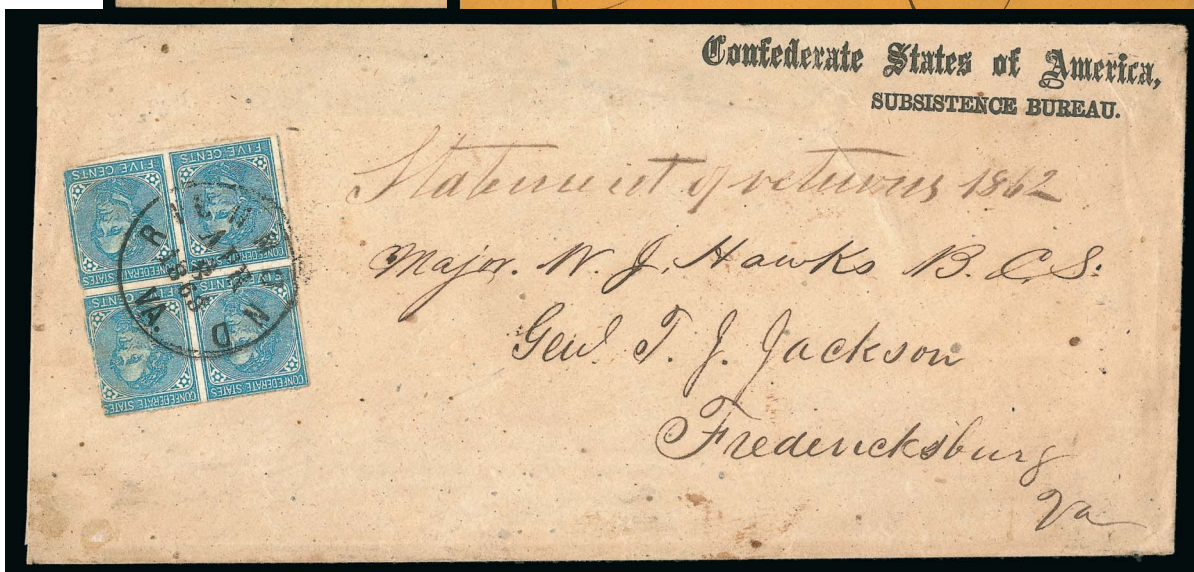 Confederate States of America,
SUBSISTENCE BUREAU.
Statement of returns 1862
Major. W. J. Hawks B. C. S.
Genl. T. J. Jackson
Fredericksburg
Va
FIVE CENTS FIVE CENTS
CONFEDERATE STATES CONFEDERATE STATES
FIVE CENTS FIVE CENTS
CONFEDERATE STATES CONFEDERATE STATES
RICHMOND VA.